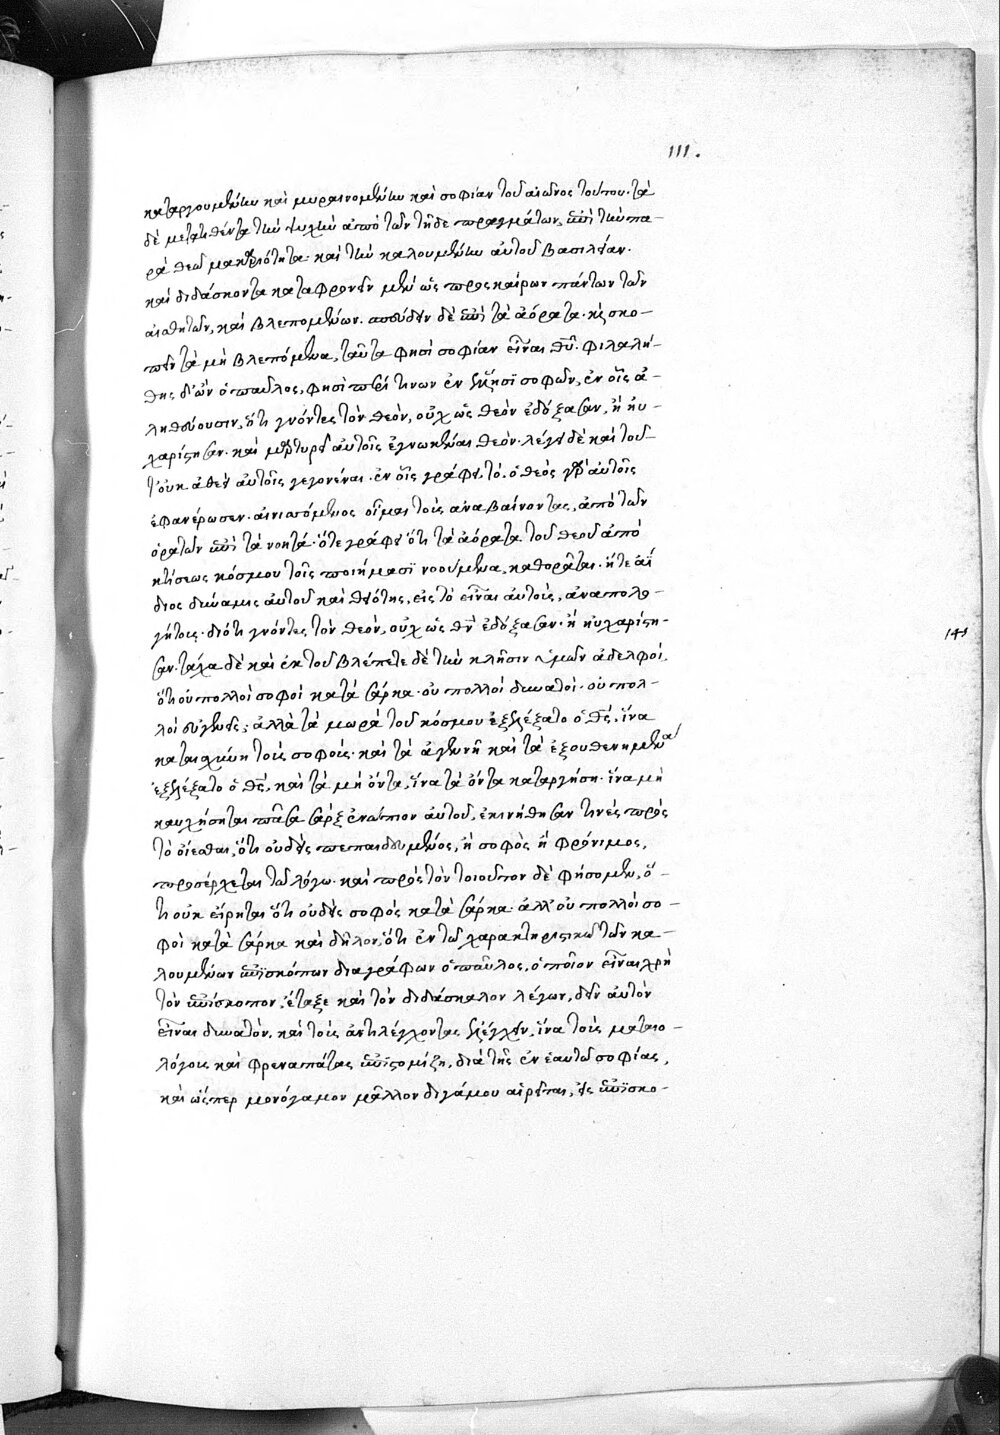 111.
καταργουμένην καὶ μωραινομένην καὶ σοφίαν τοῦ αἰῶνος τούτου· τὰ
δὲ μετατιθέντα τὴν ψυχὴν ἀπὸ τῶν τῆδε πραγμάτων, ἐπὶ τὴν πα-
ρὰ θεῶ μακαριότητα· καὶ τὴν καλουμένην αὐτοῦ βασιλείαν·
καὶ διδάσκοντα καταφρονεῖν μὲν ὡς προσκαίρων πάντων τῶν
αἰσθητῶν, καὶ βλεπομένων· σπεύδειν δὲ ἐπὶ τὰ ἀόρατα· κ̀ σκο-
πεῖν τὰ μὴ βλεπόμενα, ταῦτα φησὶ σοφίαν εἶναι θῦ· φιλαλή-
θης δ' ὢν ὁ παῦλος, φησὶ περί τινων ἐν ἕλλησϊ σοφῶν, ἐν οἷς ἀ-
ληθεύουσιν, ὅτι γνόντες τὸν θεὸν, οὐχ ὡς θεὸν ἐδόξασαν, ἢ ηὐ-
χαρίστησαν· καὶ μαρτυρεῖ αὐτοῖς ἐγνωκέναι θεόν· λέγει δὲ καὶ τοῦ-
τ' οὐκ ἀθεεὶ αὐτοῖς γεγονέναι· ἐν οἷς γράφει, τό· ὁ θεὸς γὰρ αὐτοῖς
ἐφανέρωσεν· αἰνισσόμενος οἶμαι τοὺς ἀναβαίνοντας, ἀπὸ τῶν
ὁρατῶν ἐπὶ τὰ νοητά· ὅτε γράφει ὅτι τὰ ἀόρατα τοῦ θεοῦ ἀπὸ
κτίσεως κόσμου τοῖς ποιήμασϊ νοούμενα, καθορᾶται· ἥτε ἀΐ
διος δύναμις αὐτοῦ καὶ θειότης, εἰς τὸ εἶναι αὐτοὺς, ἀναπολο-
γήτους· διότι γνόντες τὸν θεὸν, οὐχ ὡς θν̄ ἐδόξασαν· ἢ ηὐχαρίστη-
σαν· τάχα δὲ καὶ ἐκ τοῦ βλέπετε δὲ τὴν κλῆσιν ὑμῶν ἀδελφοί,
ὅτι οὐ πολλοὶ σοφοὶ κατὰ σάρκα· οὐ πολλοὶ δυνατοὶ· οὐ πολ-
λοὶ εὐγενεῖς· ἀλλὰ τὰ μωρὰ τοῦ κόσμου ἐξελέξατο ὁ θς̄, ἵνα
καταισχύνη τοὺς σοφούς· καὶ τὰ ἀγενῆ καὶ τὰ ἐξουθενημένα
ἐξελέξατο ὁ θς̄, καὶ τὰ μὴ ὄντα, ἵνα τὰ ὄντα καταργήση· ἵνα μὴ
καυχήσηται πᾶσα σὰρξ ἐνώπιον αὐτοῦ, ἐκινήθησαν τινὲς πρὸς
τὸ οἴεσθαι, ὅτι οὐδεὶς πεπαιδευμένος, ἢ σοφὸς ἢ φρόνιμος,
προσέρχεται τῶ λόγω· καὶ πρὸς τὸν τοιοῦτον δὲ φήσομεν, ὅ-
τι οὐκ εἴρηται ὅτι οὐδεὶς σοφὸς κατὰ σάρκα· ἀλλ' οὐ πολλοὶ σο-
φοὶ κατὰ σάρκα καὶ δῆλον, ὅτι ἐν τῶ χαρακτηριστικῶ τῶν κα-
λουμένων ἐπϊσκόπων διαγράφων ὁ παῦλος, ὁποῖον εἶναι χρὴ
τὸν ἐπίσκοπον, ἔταξε καὶ τὸν διδάσκαλον λέγων, δεῖν αὐτὸν
εἶναι δυνατὸν, καὶ τοὺς ἀντιλέγοντας ἐλέγχειν, ἵνα τοὺς ματαιο-
λόγους καὶ φρεναπάτας ἐπϊστομίζη, διὰ τῆς ἐν ἑαυτῶ σοφίας,
καὶ ὥσπερ μονόγαμον μᾶλλον διγάμου αἱρεῖται, εἰς ἐπϊσκο-
141